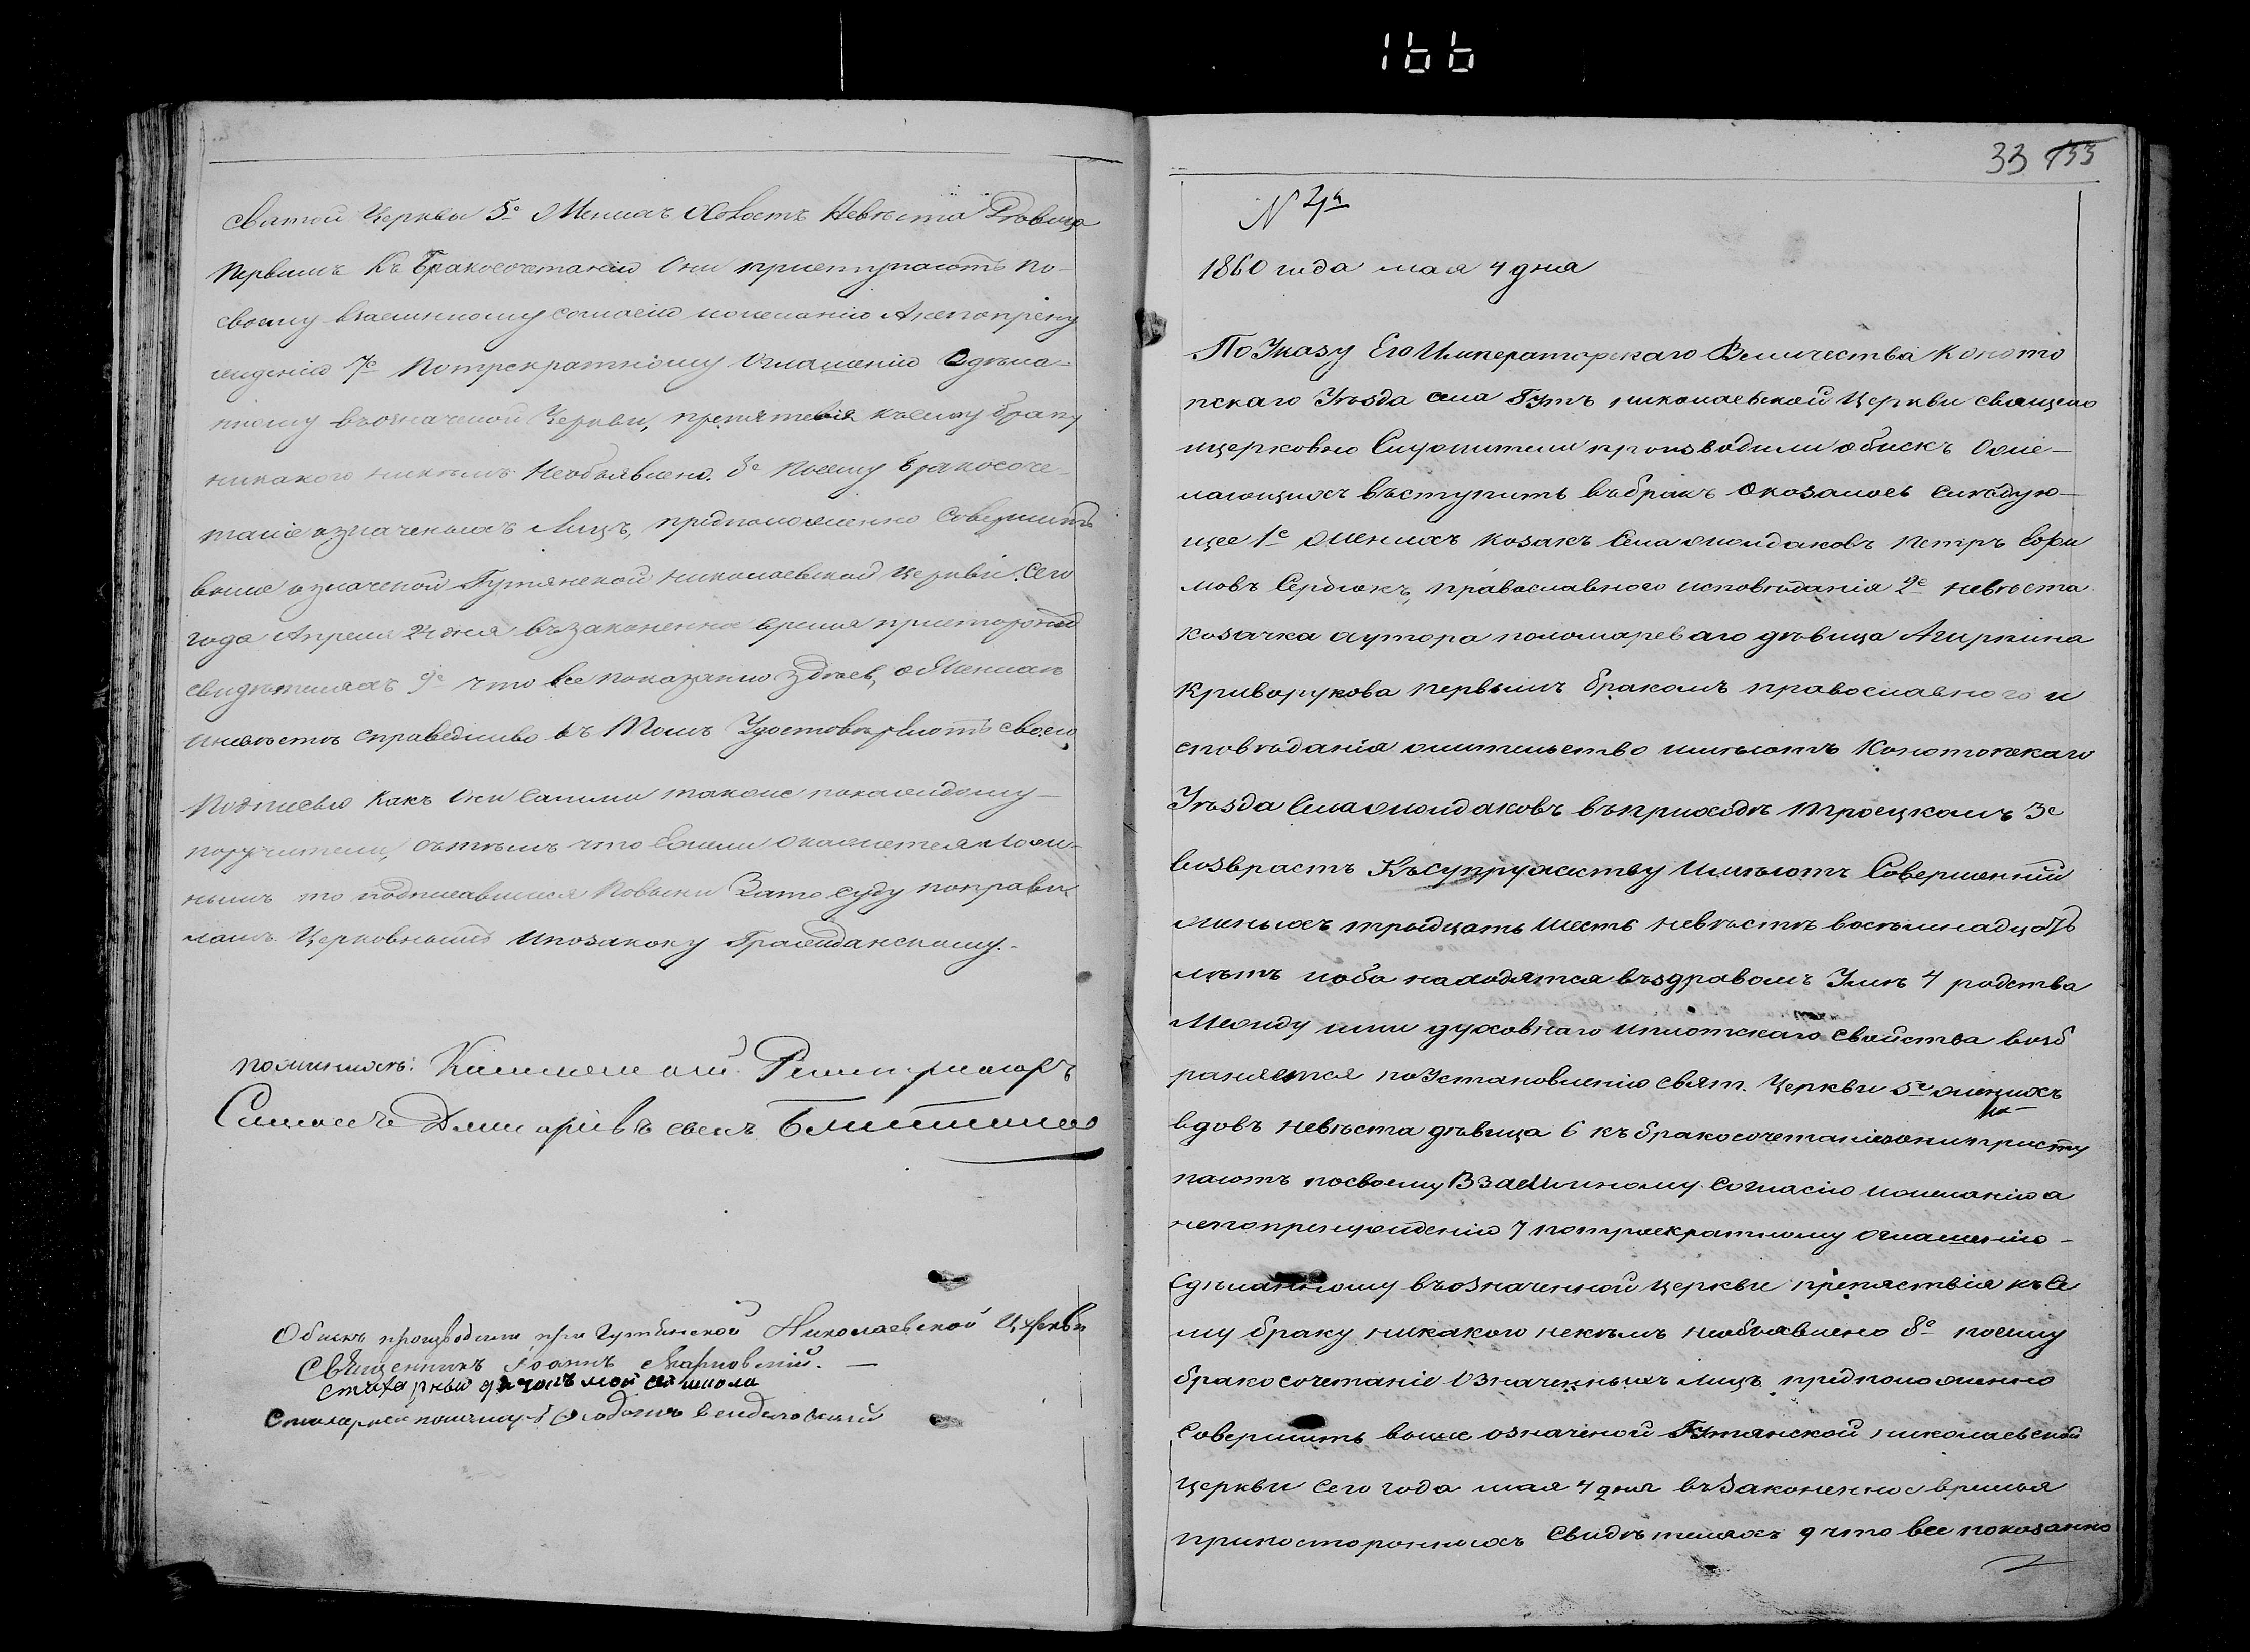 166
святой Церквы 5е Жених Холостъ Невѣста Дѣвица
первымъ Къ Бракосочетанію Они приступаютъ по-
своему взаемнному согласію ижеланію Анепопрену
жденію 7е Потрекратному Оглашенію Сдѣла-
нному въозначеной Церкви, препятевія къему браку
никакого никѣмъ Необъявлено. 8е Посему Бракосоче-
таніе означеныхъ Лицъ, предположенно Совершить
выше означеной Гутянской Николаевской Церкви. Сего
года Апреля 24 дня въ законенное время присторонихъ
свидѣтеляхъ 9е что все показанно здѣсь, оЖенихѣ
иневѣстѣ справедливо въ Томъ Удостовѣряютъ своею
Подписью Какъ Они Самими такоже покаждому-
поручители, сътѣмъ что Ежели окажется Лож-
нымъ то подписавшиеся Повыни Зато суду поправи
ламъ Церковнымъ ипозакону Гражданскому.-
Обискъ производили при Гутянской Николаевской Церкви
Священникъ Іоаннъ
33 133
N 24
1860 года мая 4 дня
По Указу Его Императорскаго Величества Коното
пскаго Уѣзда села Гутъ николаевской Церкви священо
ицерковно Служители производили обискъ Оже-
лающихъ въступить въбракъ оказалось слѣдую-
щее 1е Женихъ козакъ Села жолдаковъ Петръ Ефи
мовъ Сердюкъ, православного исповѣданія 2е невѣста
козачка хутора пономареваго дѣвица Агирпина
Криворукова первымъ бракомъ православного и
сповѣданія жительство имѣютъ Конотопскаго
Уѣзда Села жолдаковъ въприходѣ троецкомъ 3е
возврастъ Къ супружеству Имѣютъ Совершенній
женыхъ трыдцать шесть невѣстѣ восѣмнадцать
лѣтъ иоба находятся въздравомъ Умѣ 4 родства
Между ими духовнаго иплотскаго свойства возб
раняется поУстановленію свят. Церкви 5е женихъ
вдовъ невѣста дѣвица 6 къ бракосочетанію они присту
паютъ посвоему Взаемнному согласію ижеланію а
непопренуждению 7 потриекратному оглашенію-
Сдѣланному въозначенной церкви препяствія къ Се
му браку никакого некѣмъ необъявлено 8е посему
бракосочетаніе Означенныхъ лицъ предположенно
Совершить выше означеной Гутянской николаевской
церкви Сего года мая 4 дня въЗаконенное времья
припосторонныхъ Свидѣтеляхъ 9 что все показанно